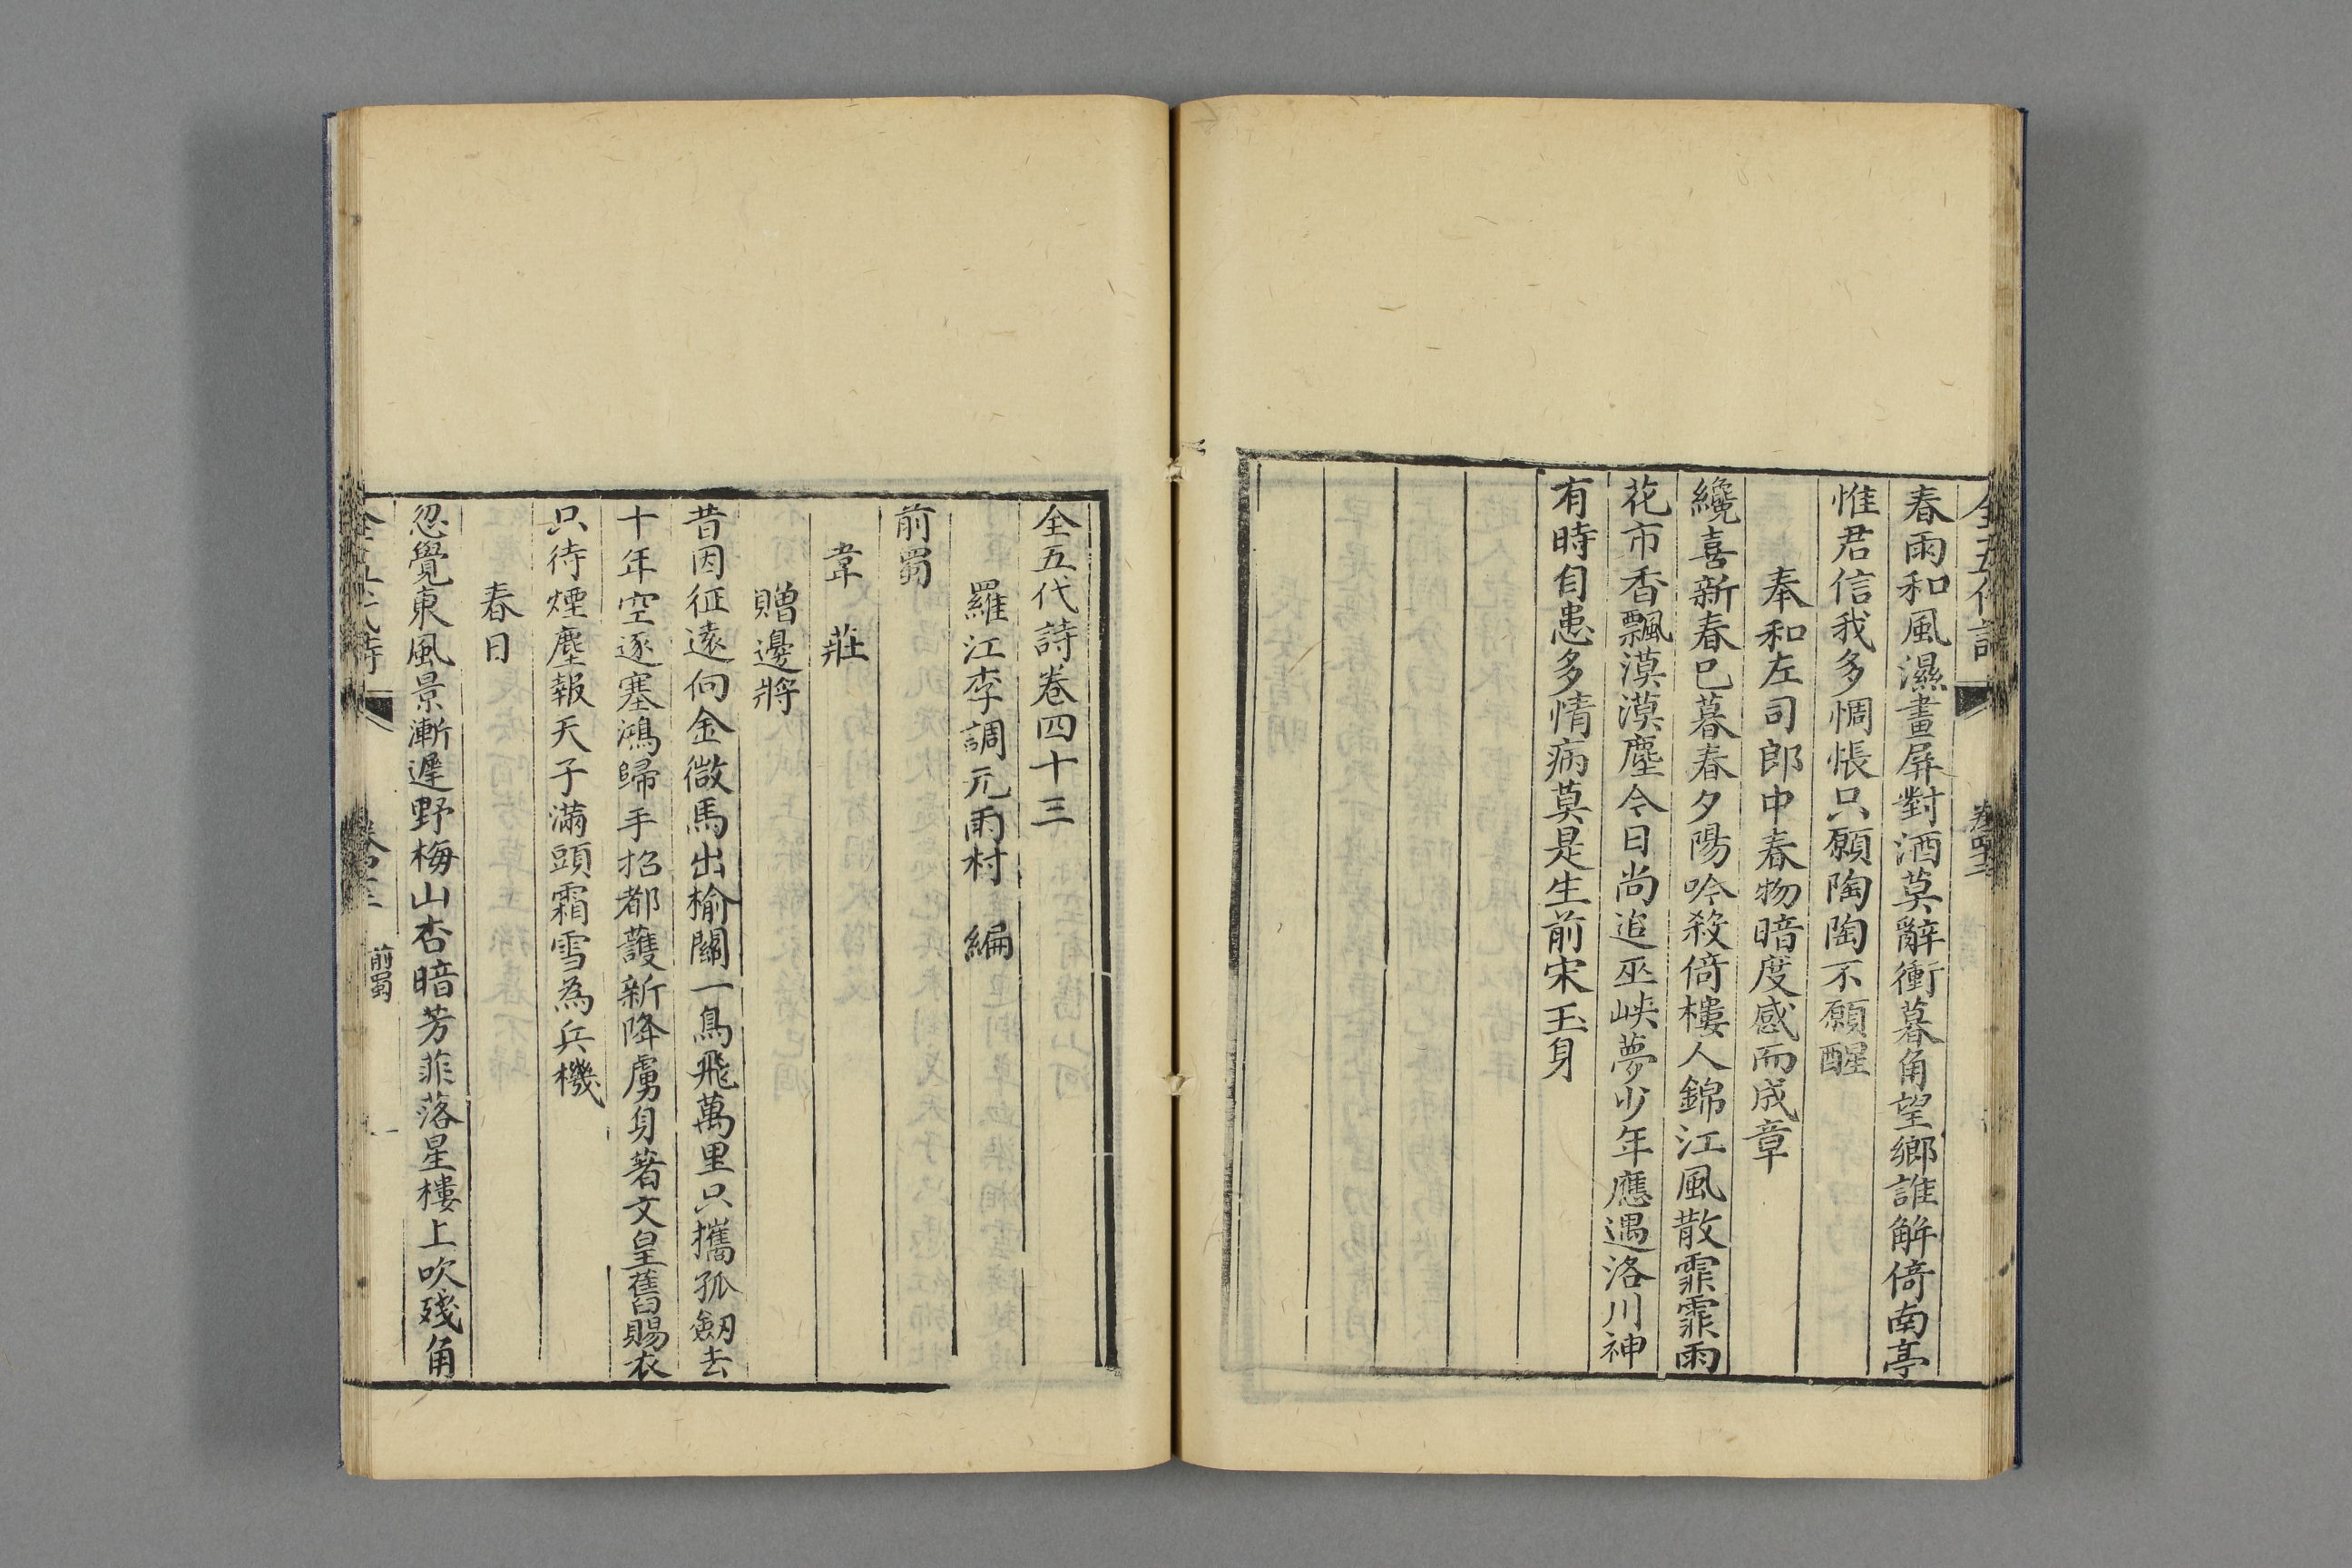 全五代詩
春雨和風濕畫屏對酒莫辭衝暮角望鄉誰解倚南亭
惟君信我多惆悵只願陶陶不願醒
奉和左司郎中春物暗度感而成章
纔喜新春已暮春夕陽吟殺倚樓人錦江風散霏霏雨
花市香飄漠漠塵今日尚追巫峽夢少年應遇洛川神
有時自患多情病莫是生前宋玉身
全五代詩卷四十三
羅江李調元雨村 編
前蜀
韋 莊
贈邊將
昔因征遠向金微馬出榆關一鳥飛萬里只攜孤劍去
十年空逐塞鴻歸手招都護新降虜身著文皇舊賜衣
只待煙塵報天子滿頭霜雪為兵機
春日
忽覺東風景漸遲野梅山杏暗芳菲落星樓上吹殘角
全五代詩 卷四十三 前蜀 一